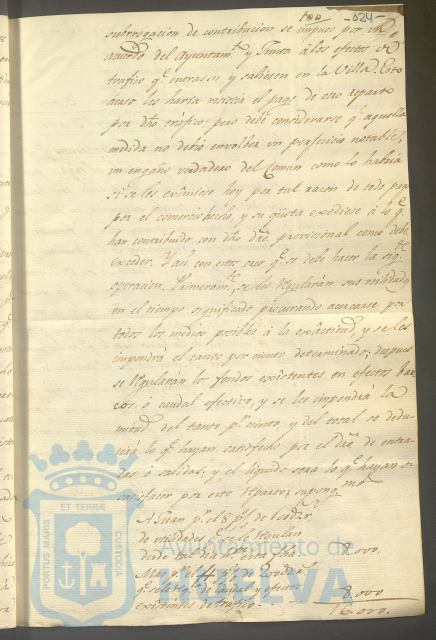 100 -024-
subrrogacion de contribucion se impuso por un
acuerdo del Ayuntam.to y Junta á los efectos de
trafico q.e entrasen y saliesen en la Villa. Esto
acaso les haria resistir el pago de otro reparto
por dho tráfico; pero debe considerarse q.e aquella
medida no debió envolber un perjuicio notable,
un engaño verdadero del Comun como lo habria
si se les eximiese hoy por tal razon de todo pago
por el comercio hecho, y su quota exediese á lo q.e
han contribuido con dho dro provisional como debe
exceder. Y asi con estos creo q.e se debe hacer la sig.te
operacion. Primeram.te se les regularán sus utilidades
en el tiempo significado procurando acercarse por
todos los medios posibles á la exâctitud, y se les
impondrá el tanto por ciento determinado; despues
se regularán los fondos exîstentes en efectos
ó caudal efectivo, y se les impondrá la
mitad del tanto p.r ciento, y del total se dedu
cirá lo q.e hayan satisfecho por el dro de entra
das ó salidas, y el liquido sera lo q.e hayan de
satisfacer por este reparto; supong.mos
A Juan p.r el 8 p.%
de utilidades q.e se le regulan
8.000.
Mas p.r el 4 p.%
de caudal y efectos
exîstentes de trafico. 8.000
16.000.
PORTUS MARIS ET TERRAE CUSTODIA
Ayuntamiento de
HUELVA